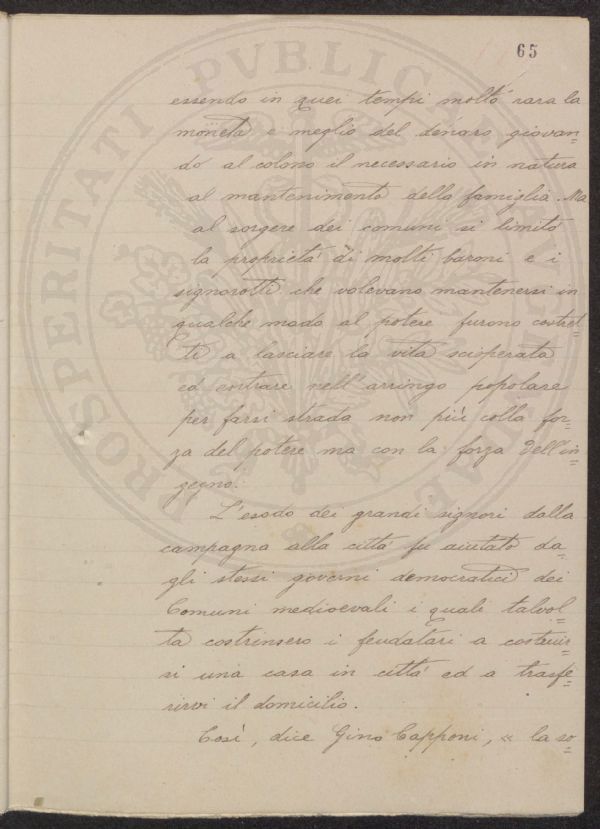 65
essendo in quei tempi molto rara la
moneta e meglio del denaro giovan=
do al colono il necessario in natura
al mantenimento della famiglia. Ma
al sorgere dei comuni si limitò
la proprietà di molti baroni e i
signorotti che volevano mantenersi in
qualche modo al potere furono costret=
ti a lasciare la vita scioperata
ed entrare nell'arringo popolare
per farsi strada non più colla for=
za del potere ma con la forza dell'in=
gegno.
L'esodo dei grandi signori dalla
campagna alla città fu aiutato da=
gli stessi governi democratici dei
Comuni medioevali i quali talvol=
ta costrinsero i feudatari a costruir=
si una casa in città ed a trasfe=
rirvi il domicilio.
Così, dice Gino Capponi, « la so=
PROSPERITATI PVBLICAE